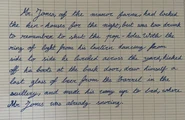 Mr. Jones, of the manor farm, had locked
the hen-houses for the night, but was too drunk
to remember to shut the pop-holes. With the
ring of light from his lantern dancing from
side to side he lurched across the yard, kicked
off his boots at the back door, drew himself a
last glass of beer from the barrel in the
scullery, and made his way up to bed, where
Mr. Jones was already snoring.